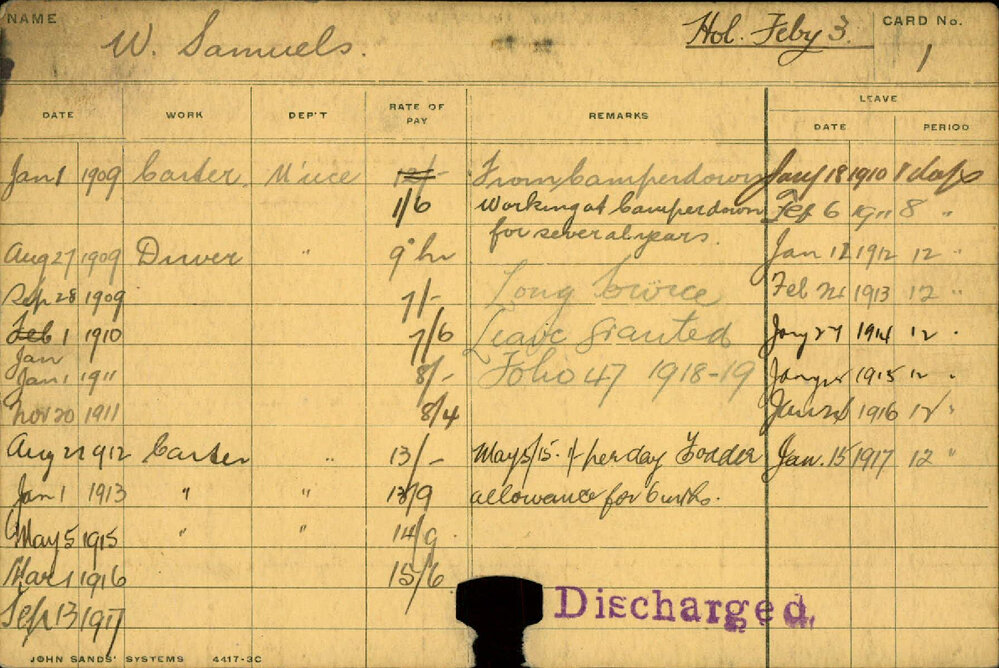 NAME W. Samuels. Hol. Feby 3. CARD No. 1
LEAVE
DATE WORK DEP'T RATE OF PAY REMARKS DATE PERIOD
Jan 1 1909 Carter. 12/- From Camperdown Jany 18 1910 8 days
1/6 Working at Camperdown Feb 6 1911 8 "
for several years.
Aug 27 1909 Driver " 9" hr Jan 12 1912 12 "
Sep 28 1909 7/- Long Service Feb 24 1913 12 "
Feb 1 1910 7/6 Leave Granted Jany 27 1914 12 "
Jan
Jan 1 1911 8/- Folio 47 1918-19 Jany 1915 12 "
Nov 20 1911 8/4 Jan 24 1916 12 "
Aug 22 1912 Carter " 13/- May 5/15. 1/- per day Fodder Jan. 15 1917 12 "
Jan 1 1913 " " 13/9 allowance for 6 mths.
May 5 1915 " " 14/9
Mar 1 1916 15/6
Sep 13 1917 Discharged.
JOHN SANDS' SYSTEMS 4417-3C